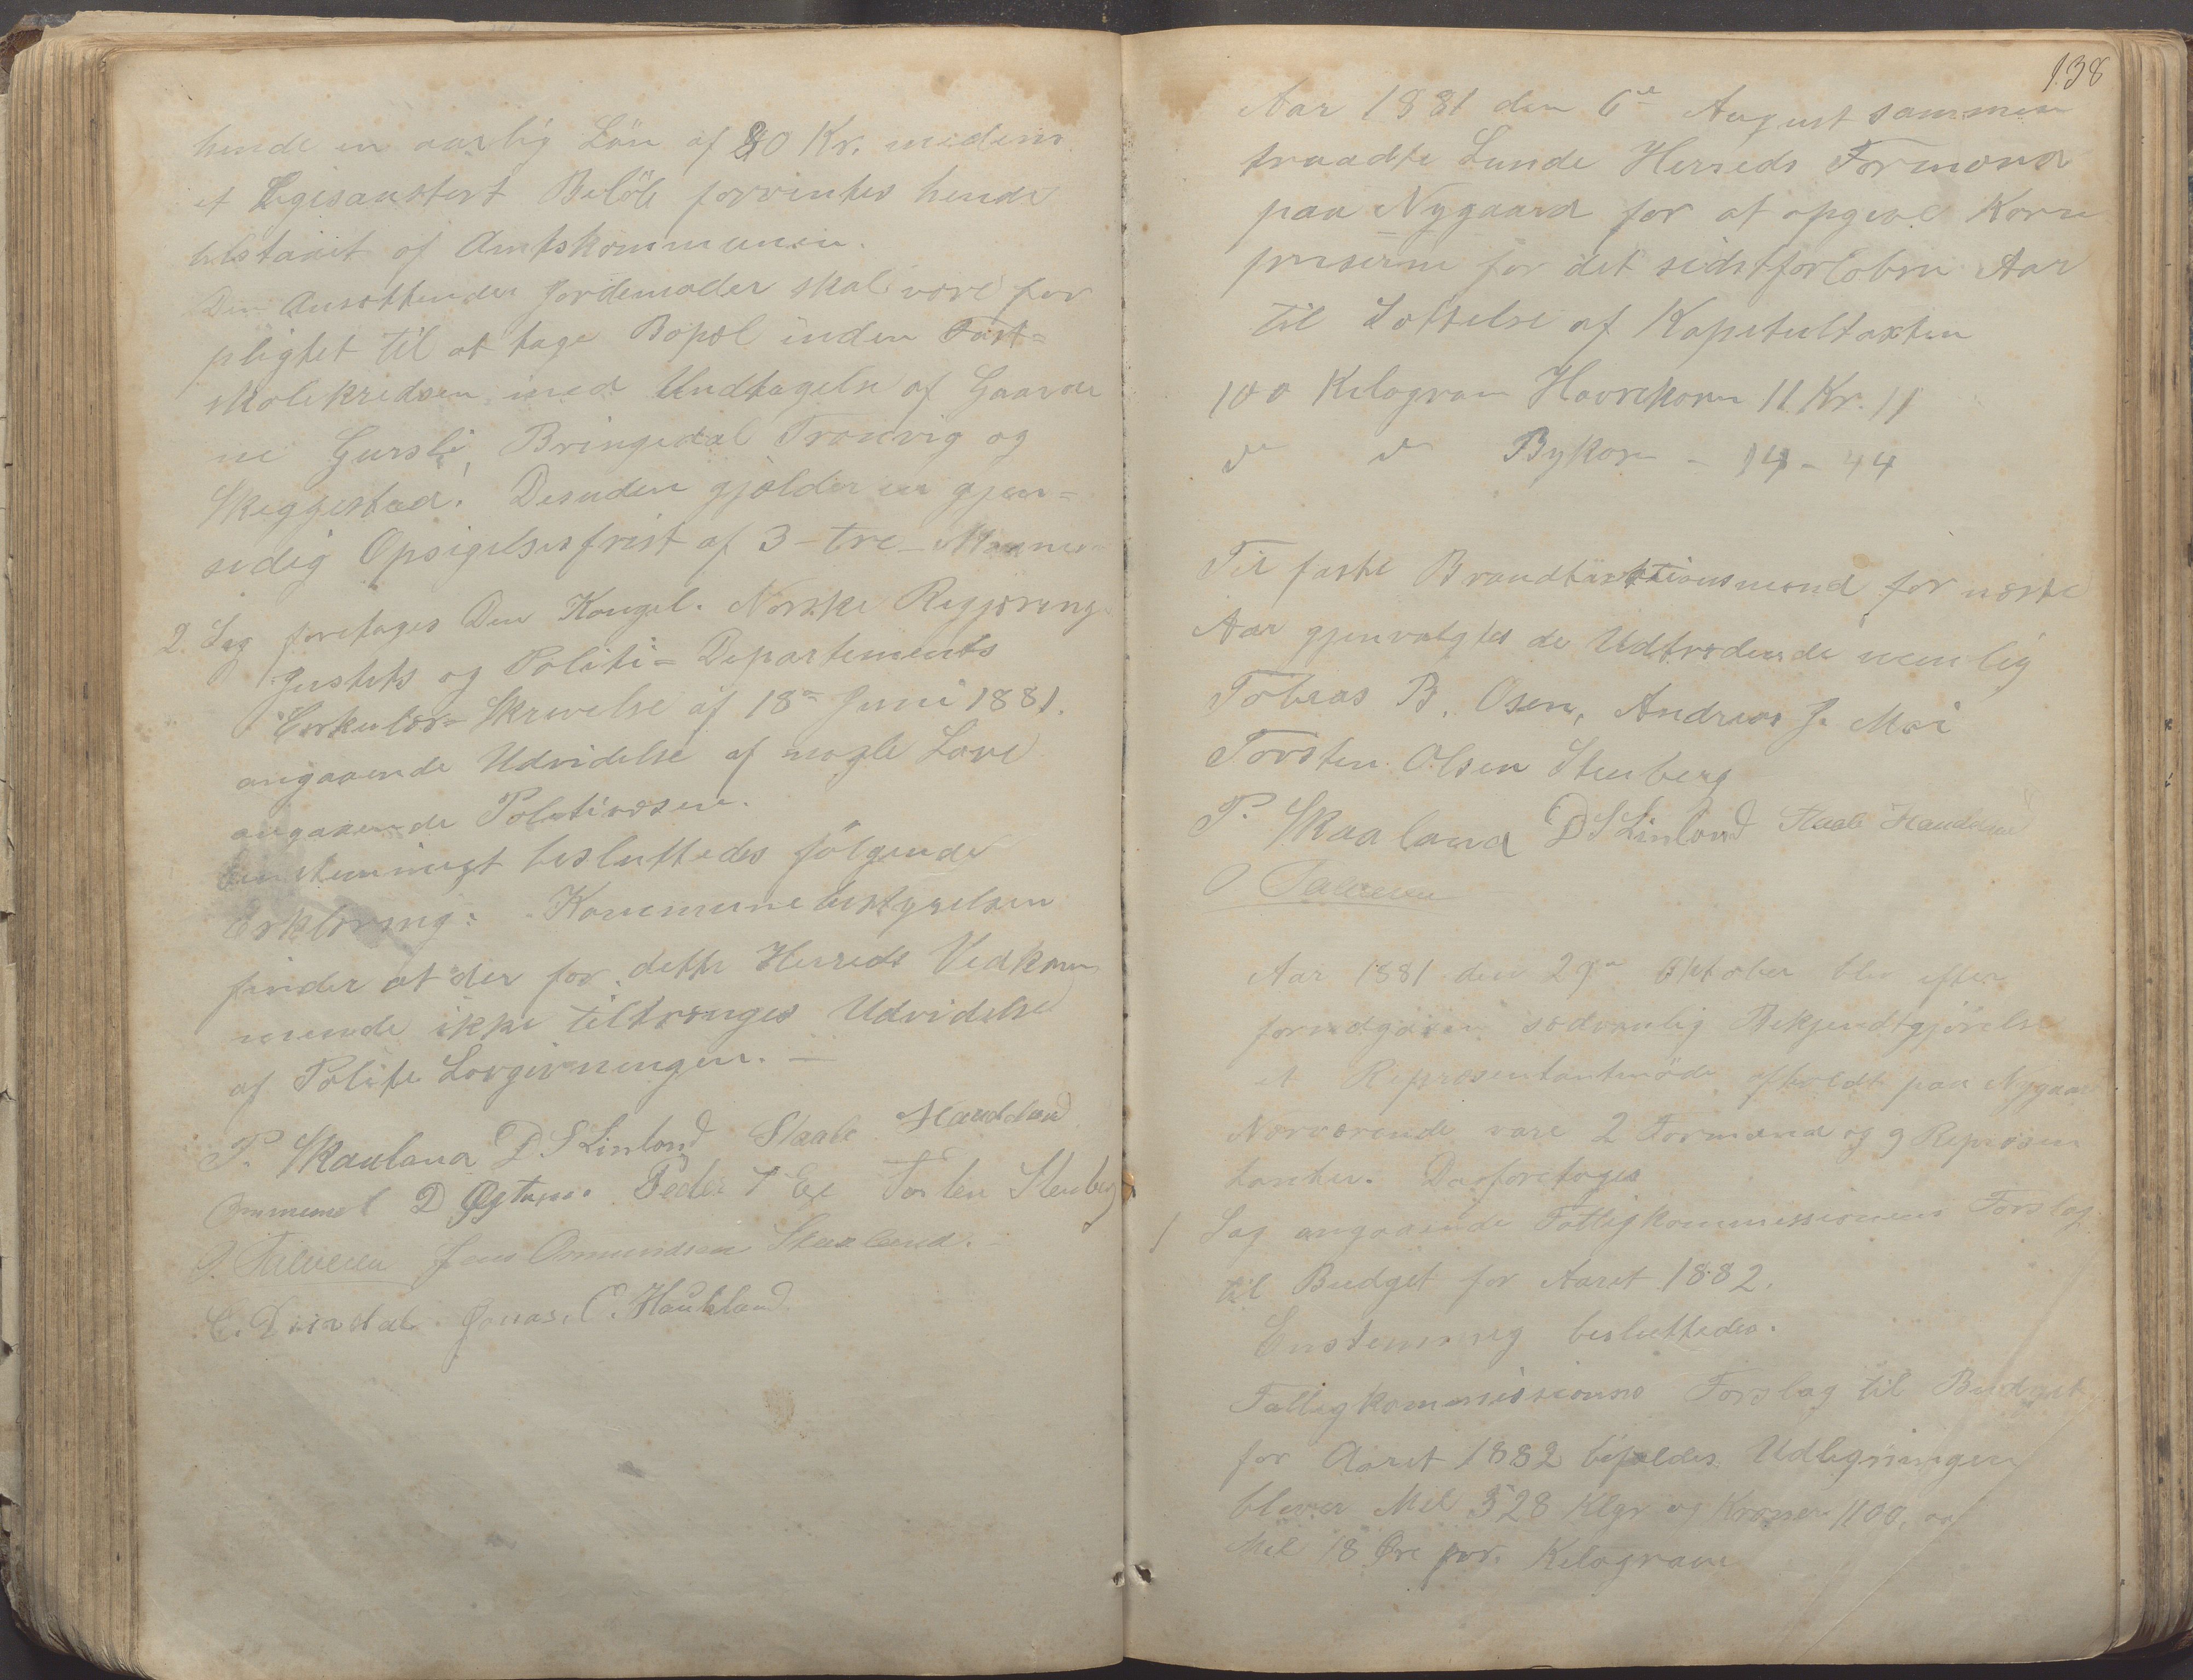 hende en aarlig Lön af 80 Kr. medens
et ligesaastort Belöb forventes hende
tilstaaet af Amtskommunen.
Den Ansættendes Jordemoder skal være for
pligtet til at tage Bopæl inden Fast-
skolekredsen med Undtagelse af Gaarde
ne Gursli, Bringedal Tronvig og
Skeggestad. Desuden gjælder en gjen-
sidig Opsigelsesfrist af 3 - tre - Maane
2. Sag foretages Den Kongel. Norske Regjerings
Justits og Politi- Departements
Cirkulær- Skrivelse af 18de Juni 1881.
angaaende Udvidelse af nogle Love
angaaende Politivæsen.
Eenstemmigt besluttedes fölgende
Erklæring: Kommunebestyrelsen
finder at der for dette Herreds Vedkom
mende ikke tiltrænges Udvidelse
af Politi Lovgivningen. —
P. Skaaland D S Linland Staale Hauddand
Ommund D Øgtun. Peder T Eie Torsten Stenberg
J. Jens Omundsen Skaaland.
E. Dirdal Jonas. C. Haukland
138
Aar 1881 den 6te August sammen
traadte Lunde Herreds Formænd
paa Nygaard for at opgive Korn
priserne for det sidstforløbne Aar
til Sættelse af Kapiteltaxten
100 Kilogram Havrekorn 11 Kr. 11
do do Bykorn - 14 - 44
Til faste Brandtaxtationsmænd for næste
Aar gjenvalgtes de Udtrædende nemlig
Tobias B. Osen, Andreas J. Moi
Torsten Olsen Stenberg
P. Skaaland D S Linland Staale Hauddand
Aar 1881 den 29de Oktober blev efter
foregaaen sædvanlig Bekjendtgjörelse
et Repræsentantmöde afholdt paa Nygaard
Nærværende vare 2 Formænd og 9 Repræsen
tanter. Da foretoges
1 Sag angaaende Fattigkommissionens Forslag
til Budget for Aaret 1882.
Enstemmig besluttedes.
Fattigkommissionens Forslag til Budget
for Aaret 1882 bifaldes Udligningen
bliver Mel 528 Klgr og Kroner 1100, og
Mel 18 Øre pr. Kilogram